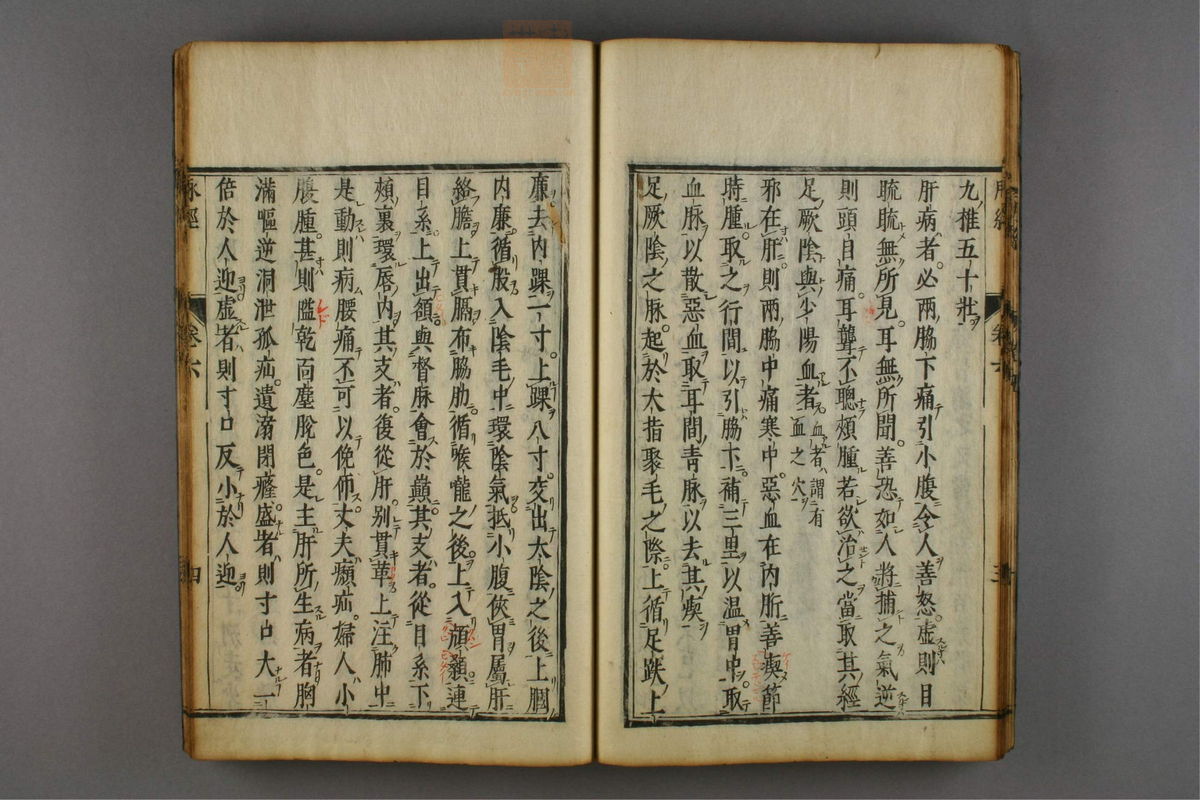 九椎五十壯
肝病者必兩脇下痛引小腹令人善怒虛則目
䀮䀮無所見耳無所聞善恐如人將捕之氣逆
則頭目痛耳聾不聰頰腫若欲治之當取其經
足厥陰與少陽血者血者謂有血之穴
邪在肝則兩脇中痛寒中惡血在內胻善瘈節
時腫取之行間以引脇下補三里以温胃中取
血脉以散惡血取耳間青脉以去其瘈
足厥陰之脉起於大指聚毛之際上循足趺上
廉去內踝一寸上踝八寸交出太陰之後上膕
內廉循股入陰毛中環陰氣抵小腹俠胃屬肝
絡膽上貫膈布脇肋循喉嚨之後上入頏顙連
目系上出額與督脉會於巔其支者從目系下
頰裏環唇內其支者復從肝別貫鬲上注肺中
是動則病腰痛不可以俛仰丈夫㿗疝婦人小
腹腫甚則嗌乾面塵脫色是主肝所生病者胸
滿嘔逆洞泄狐疝遺溺閉癃盛者則寸口大一
倍於人迎虛者則寸口反小於人迎
脉經
卷六
四